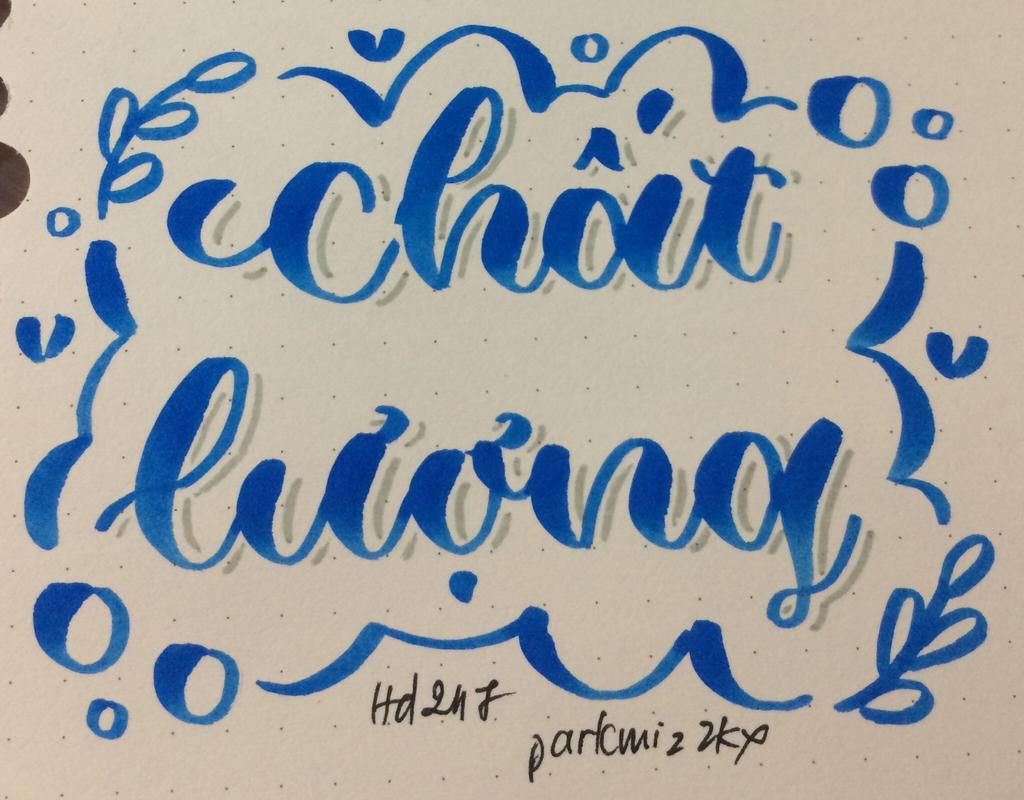 chất
lượng
Hd247
parkmiz2kx